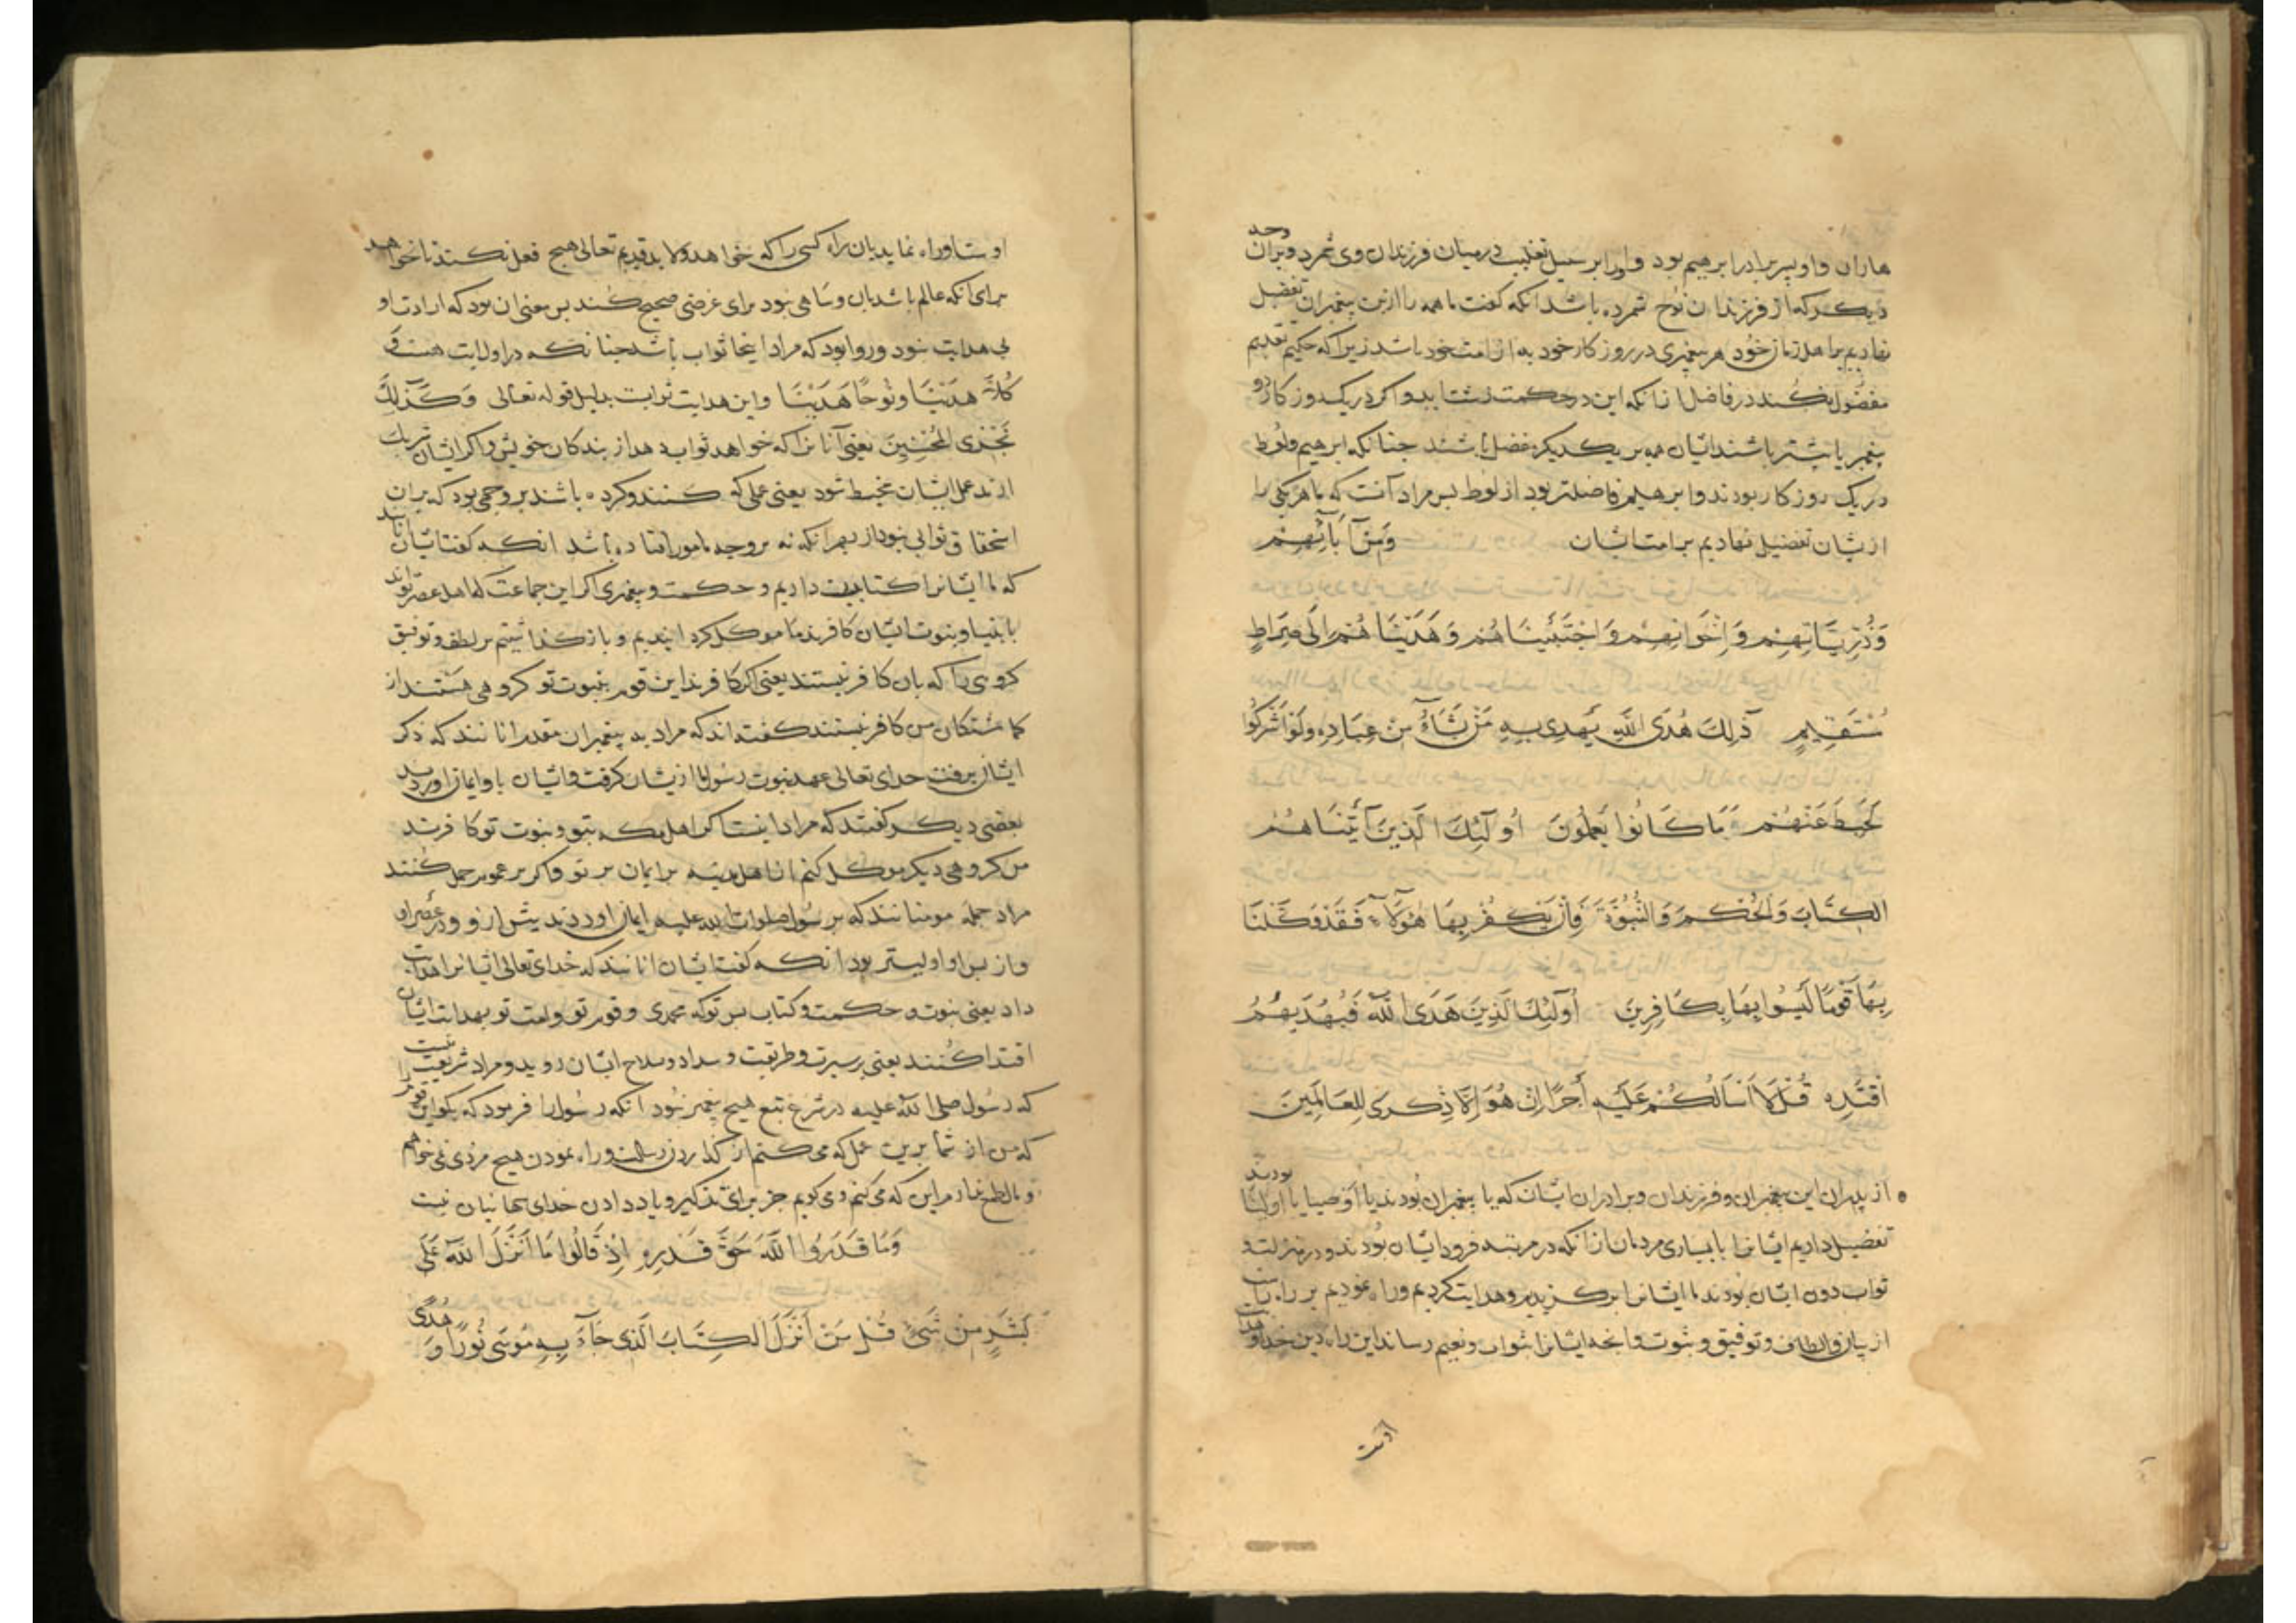 هاران واو پسر برادر ابرهیم بود و اورا بر سبیل تغلیب در میان فرزندان وی شمرد و بران وجه
دیکر که از فرزندان نوح شمرده باشد انکه کفت ما همه را ازین پیغمبران تفضیل
نهادیم بر اهل زمان خود هر پیغمبری در روز کار خود به از امت خود باشد زیرا که حکیم تقدیم
مفضول نکند در فاضل از انکه این در حکمت زشت اید و اکر در یک روز کار دو
پیغمبر یا بیشتر باشند ایشان همه بر یکدیکر مفضل باشند جنانکه ابرهیم و لوط
در یک روز کار بودند و ابرهیم فاضلتر بود از لوط بس مراد آنست که ما هر یکی را
ازیشان تفضیل نهادیم بر امت ایشان وَمِنْ آبَائِهِمْ
وَذُرِّيَّاتِهِمْ وَإِخْوَانِهِمْ وَاجْتَبَيْنَاهُمْ وَهَدَيْنَاهُمْ إِلَى صِرَاطٍ
مُسْتَقِيمٍ ذَلِكَ هُدَى اللَّهِ يَهْدِي بِهِ مَنْ يَشَاءُ مِنْ عِبَادِهِ وَلَوْ أَشْرَكُوا
لَحَبِطَ عَنْهُمْ مَا كَانُوا يَعْمَلُونَ أُولَئِكَ الَّذِينَ آتَيْنَاهُمُ
الْكِتَابَ وَالْحُكْمَ وَالنُّبُوَّةَ فَإِنْ يَكْفُرْ بِهَا هَؤُلَاءِ فَقَدْ وَكَّلْنَا
بِهَا قَوْمًا لَيْسُوا بِهَا بِكَافِرِينَ أُولَئِكَ الَّذِينَ هَدَى اللَّهُ فَبِهُدَيهُمُ
اقْتَدِهِ قُلْ لَا أَسْأَلُكُمْ عَلَيْهِ أَجْرًا إِنْ هُوَ إِلَّا ذِكْرَى لِلْعَالَمِينَ
از پدران این پیغمبران و فرزندان و برادران ایشان که یا پیغمبران بودند یا اوصیا یا اولیا بودند
تفضیل دادیم ایشانرا با بسیاری مردمان از انکه در مرتبه فرود ایشان بودند و در منزلت و
ثواب دون ایشان بودند ما ایشانرا برکزیدیم و هدایت کردیم و راه نمودیم بر راه راست
از بیان و الطاف و توفیق و نبوت و انچه ایشانرا بثواب و نعیم رساند این راه دین خدا و هدایت
اوست
اوست او راه نماید بان راه کسی را که خواهد ولابد قدیم تعالی هیچ فعل نکند تا نخواهد
برای آنکه عالم باشد بان و ساهی نبود برای غرضی صحیح کند بس معنی ان بود که ارادت او
بی هدایت نبود و روا بود که مراد اینجا ثواب باشد جنانکه در اول ایت هست و
كُلًّا هَدَيْنَا وَنُوحًا هَدَيْنَا واین هدایت ثوابست بدلیل قوله تعالی وَكَذَلِكَ
نَجْزِي الْمُحْسِنِينَ یعنی آنانرا که خواهد ثواب دهد از بندکان خویش و اکر ایشان شریک
ارند عمل ایشان محبط شود یعنی عملی که کنند و کرده باشند بر وجهی بود که بران
استحقاق ثوابی نبود از بهر انکه نه بر وجه مامور افتاده باشد انکه کفت ایشان انانند
که ما ایشانرا کتابت دادیم و حکمت و پیغمبری اکر این جماعت که اهل عصر تواند
بانبیا و بنوت ایشان کافرند ما موکل کردانیدیم و بازکذاشتیم بر لطف و توفیق
کروهی را که بان کافر نیستند یعنی اکر کافرند این قوم بنبوت تو کروهی هستند از
کماشتکان من کافر نیستند کفته اند که مراد به پیغمبران مقدم انانند که ذکر
ایشان برفت خدای تعالی عهد نبوت رسول ما ازیشان کرفت و ایشان باو ایمان اوردند
بعضی دیکر کفتند که مراد اینست اکر اهل مکه بتو و بنبوت تو کافرند
من کروهی دیکر موکل کنم از اهل مدینه بر ایمان بر تو و اکر بر عموم حمل کنند
مراد جمله مومنانند که بر رسول صلوات الله علیه ایمان اوردند بیش ازو و در عصر او
واز بس او اولیتر بود انکه کفت ایشان انانند که خدای تعالی ایشانرا هدایت
داد یعنی نبوت و حکمت و کتاب بس تو که محمدی و قوم تو و امت تو بهدایت ایشان
اقتدا کنند یعنی بر سیرت و طریقت و سداد و صلاح ایشان روید و مراد شریعت نیست
که رسول صلی الله علیه در شرع تبع هیچ پیغمبر نبود آنکه رسول را فرمود که بکو این قوم را
که من از شما برین عمل که می کنم از کذاردن رسالت و راه نمودن هیچ مزدی نمی خواهم
و مالی طمع ندارم این که می کنم و می کویم جز برای تذکیر و یاد دادن خدای بجهانیان نیست
وَمَا قَدَرُوا اللَّهَ حَقَّ قَدْرِهِ إِذْ قَالُوا مَا أَنْزَلَ اللَّهُ عَلَى
بَشَرٍ مِنْ شَيْءٍ قُلْ مَنْ أَنْزَلَ الْكِتَابَ الَّذِي جَاءَ بِهِ مُوسَى نُورًا وَهُدًى